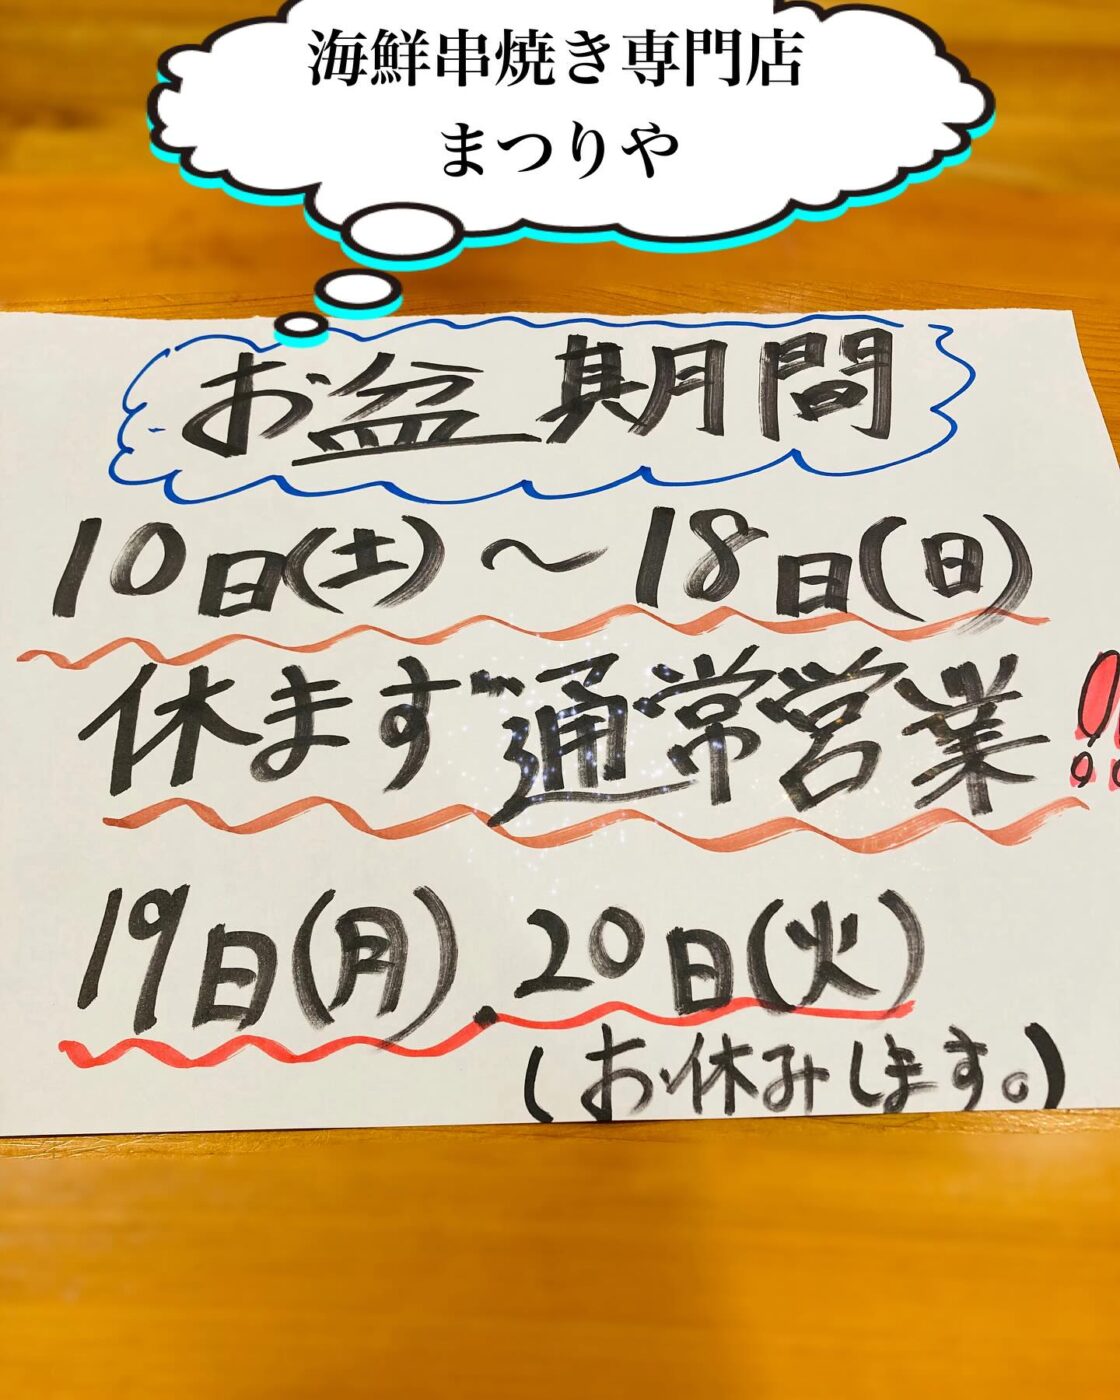 海鮮串焼き専門店
まつりや
お盆期間
10日(土)～18日(日)
休まず通常営業!!
19日(月).20日(火)
(お休みします。)